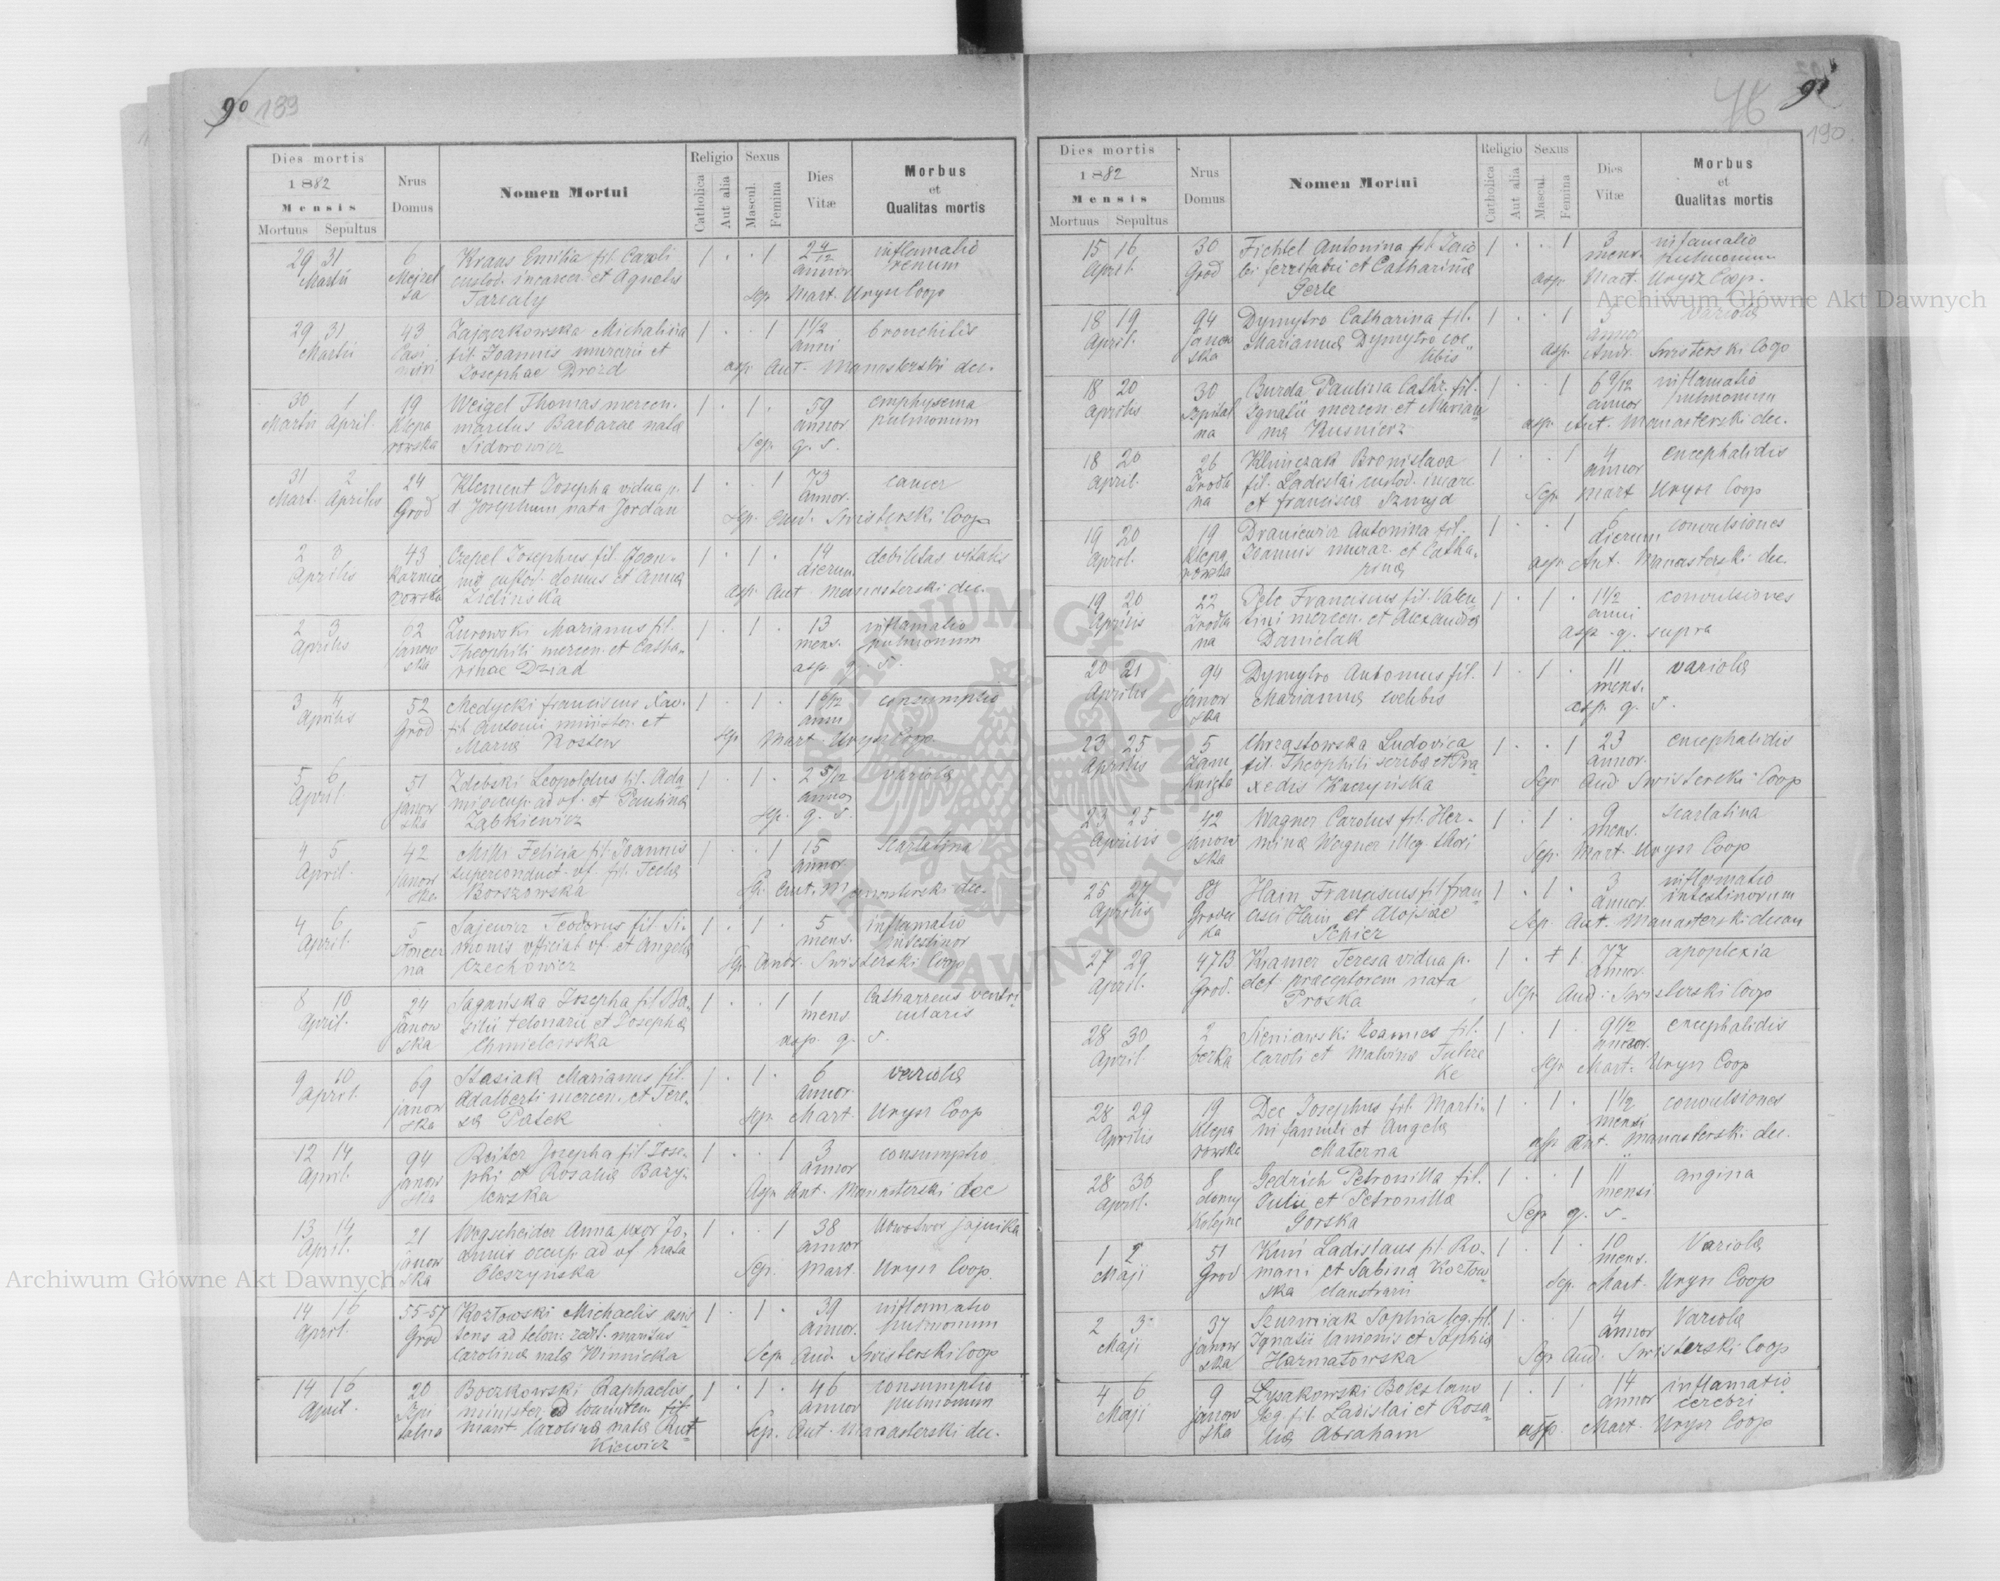 90 189
Dies mortis
1882
Mensis
Mortuus Sepultus
Nrus
Domus
Nomen Mortui
Religio
Catholica
Aut alia
Sexus
Mascul.
Femina
Dies
Vitæ
Morbus
et
Qualitas mortis
29 31 6 Kraus Emilia fil. Caroli 1 . . 1 2 9/12 inflamatio
Martii custod. incarcer. et Agnetis annor renum
Sep. Mart. Uryn Coop
29 31 43 Zajączkowska Michalina 1 . . 1 1 1/2 bronchitis
Martii Casi fil. Joannis murarii et anni
miri Josephae Drozd asp. Ant. Manasterski dec.
30 1 19 Weigel Thomas mercen. 1 . 1 . 59 emphysema
Martii April. Klepa maritus Barbarae nata annor pulmonum
rowska Sidorowicz Sep. q. s.
31 2 24 Klement Josepha vidua p. 1 . . 1 73 cancer
Mart. Aprilis Grod d. Josephum nata Jordan annor.
Sep. And. Swisterski Coop
2 3 43 Czepel Josephus fil. Joan- 1 . 1 . 14 debilitas vitalis
Aprilis custod. domus et Anna dierum
Zielinska asp. Ant. Manasterski dec.
2 3 92 Zurowski Marianus fil. 1 . 1 . 13 inflamatio
Aprilis janow Theophili mercen. et Catha- mens. pulmonum
ska rinae Dziad asp. q. s.
3 4 52 Medycki Franciscus Xav. 1 . 1 . 1 6/12 consumptio
Aprilis Grod fil. Antonii et anni
Maria Kosten Sep. Mart. Uryn Coop
5 6 51 Zdebski Leopoldus fil. Ada 1 . 1 . 2 5/12 variola
April janow mi occup. ad of. et Paulina annor
ska Ząbkiewicz Sep. q. s.
4 5 42 Felicia fil. Joannis 1 . . 1 15 Scarlatina
April. janow superconduct. annor.
ska Borszowska Sep. Ant. Manasterski dec.
4 6 5 Sajewicz Teodorus fil. Si- 1 . 1 . 5 inflamatio
April. monis official of. et Angela mens. intestinor
Czechowicz Sep. Andr. Swisterski Coop
8 10 24 Saganska Josepha fil. Ba- 1 . . 1 1 Catharreus ventri
April. janow silii telonarii et Josepha mens cularis
ska Chmielowska asp. q. s.
9 10 69 Stasiak Marianus fil. 1 . 1 . 6 variola
April. janow Adalberti mercen. et Tere- annor
ska sa Pasek Sep. Mart Uryn Coop
12 14 94 Reiter Josepha fil. Jose- 1 . . 1 3 consumptio
April. janow phi et Rosalia Bazy- annor
ska lewska Asp. Ant. Manasterski dec
13 14 21 Wegscheider Anna uxor Jo- 1 . . 1 38 Nowotwor jajnika
April. janow annis occup. ad of nata annor
ska Oleszynska Sep. Mart. Uryn Coop.
14 16 55-57 Kozłowski Michaelis asis 1 . 1 . 39 inflamatio
April. Grod tens ad telon. maritus annor. pulmonum
Carolina nata Winnicka Sep. And. Swisterski Coop
14 16 20 Boczkowski Raphaelis 1 . 1 . 46 consumptio
April. Szpi minister annor pulmonum
talna marit. Carolina nata Rut
kiewicz Sep. Ant. Manasterski dec.
76 91
190.
Dies mortis
1882
Mensis
Mortuus Sepultus
Nrus
Domus
Nomen Mortui
Religio
Catholica
Aut alia
Sexus
Mascul.
Femina
Dies
Vitæ
Morbus
et
Qualitas mortis
15 16 30 Fichtel Antonina fil. 1 . . 1 3 inflamatio
April. Grod et Catharina mens. pulmonum
Perle asp. Mart. Uryn Coop.
18 19 94 Dymytro Catharina fil. 1 . . 1 5 variola
April. janow Marianna Dymytro coe annor
ska libis asp. Andr. Swisterski Coop
18 20 30 Burda Paulina Cathr. fil. 1 . . 1 6 9/12 inflamatio
Aprilis Szpital Ignatii mercen. et Marian annor pulmonum
na na Kusnierz asp. Ant. Manasterski dec.
18 20 26 Klimczak Bronislava 1 . . 1 4 encephalidis
April. Zrodla fil. Ladislai custod. incarc annor
na et Francisca Szmyd Sep. Mart Uryn Coop
19 20 19 Draniewicz Antonina fil. 1 . . 1 6 convulsiones
April. Klepa Joannis murar. et Catha- dierum
rowska rina asp. Ant. Manasterski dec.
19 20 22 Pelc Franciscus fil. Valen 1 . 1 . 1 1/2 convulsiones
Aprilis Zrodla tini mercen. et Alexandra anni
na Danielak asp. q. supra
20 21 94 Dymytro Antonius fil. 1 . 1 . 11 variola
Aprilis janow Marianna coelibis mens.
ska asp. q. s.
23 25 5 Chrząstowska Ludovica 1 . . 1 23 encephalidis
Aprilis fil. Theophili scriba et Pra annor.
xedis Kuczynska Sep. And Swisterski Coop
23 25 42 Wagner Carolus fil. Her- 1 . 1 . 9 scarlatina
Aprilis janow mina Wagner illeg. thori mens.
ska Sep. Mart. Uryn Coop
25 27 88 Hain Franciscus fil Fran 1 . 1 . 3 inflamatio
Aprilis Grodec cisci Hain et Alojsae annor. intestinorum
ka Schier Sep. Ant. Manasterski decan
27 29 47 13 Kramer Teresa vidua p. 1 . + 1 77 apoplexia
April. Grod. def. praeceptorem nata annor.
Proska Sep. And. Swisterski Coop
28 30 2 Sieniawski Joannes fil. 1 . 1 . 9 1/2 encephalidis
April Caroli et Malvina annor.
Sep. Mart. Uryn Coop
28 29 19 Dec Josephus fil. Marti- 1 . 1 . 1 1/2 convulsiones
Aprilis Klepa ni famuli et Angela mensi
rowska Materna asp. Ant. Manasterski dec.
28 30 8 Gedrich Petronilla fil. 1 . . 1 11 angina
April. domy Julii et Petronilla mensi
Kolejne Gorska Sep. q. s.
1 2 51 Ladislaus fil. Ro- 1 . 1 . 10 Variola
Maji Grod mani et Sabina Kozłow mens.
ska claustrarii Sep. Mart. Uryn Coop
2 3 37 Szurmiak Sophia leg. fil. 1 . . 1 4 Variola
Maji janow Ignatii lanionis et Sophia annor
ska Harmatowska Sep And. Swisterski Coop
4 6 9 Łysakowski Boleslaus 1 . 1 . 14 inflamatio
Maji janow leg. fil. Ladislai et Rosa- annor cerebri
ska lia Abraham asp. Mart. Uryn Coop
Archiwum Główne Akt Dawnych
Archiwum Główne Akt Dawnych
ARCHIWUM GŁÓWNE AKT DAWNYCH